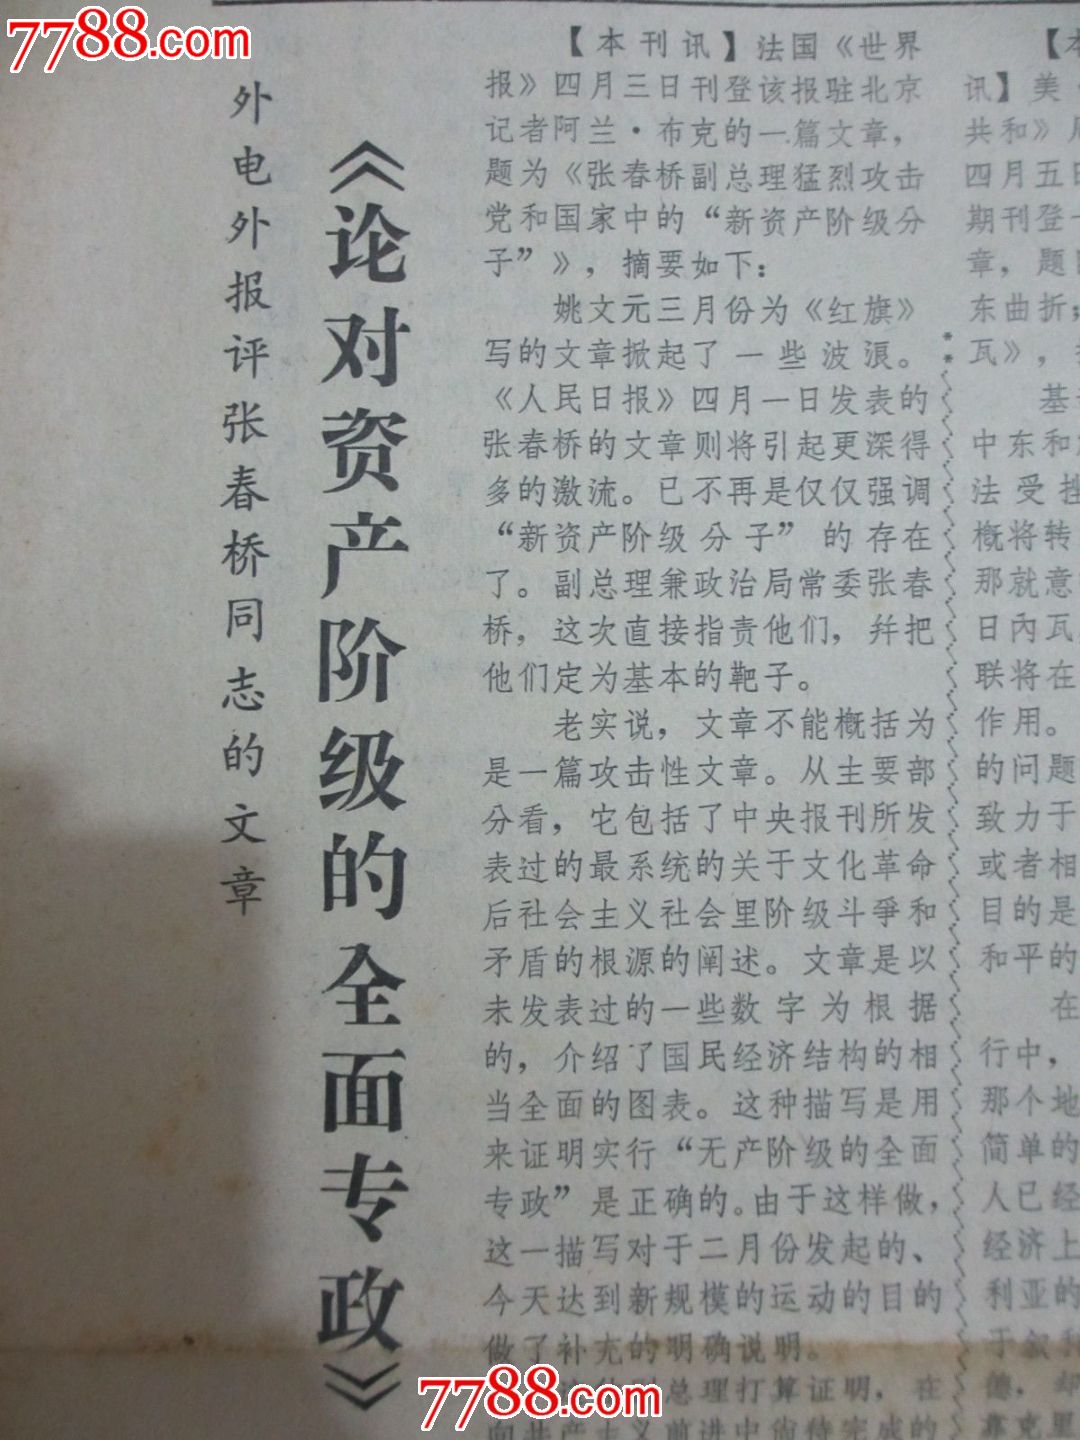 7788.com
外电外报评张春桥同志的文章
《论对资产阶级的全面专政》
【本刊讯】法国《世界
报》四月三日刊登该报驻北京
记者阿兰·布克的一篇文章，
题为《张春桥副总理猛烈攻击
党和国家中的“新资产阶级分
子”》，摘要如下：
姚文元三月份为《红旗》
写的文章掀起了一些波浪。
《人民日报》四月一日发表的
张春桥的文章则将引起更深得
多的激流。已不再是仅仅强调
“新资产阶级分子”的存在
了。副总理兼政治局常委张春
桥，这次直接指责他们，幷把
他们定为基本的靶子。
老实说，文章不能概括为
是一篇攻击性文章。从主要部
分看，它包括了中央报刊所发
表过的最系统的关于文化革命
后社会主义社会里阶级斗爭和
矛盾的根源的阐述。文章是以
未发表过的一些数字为根据
的，介绍了国民经济结构的相
当全面的图表。这种描写是用
来证明实行“无产阶级的全面
专政”是正确的。由于这样做，
这一描写对于二月份发起的、
今天达到新规模的运动的目的
做了补充的明确说明。
总理打算证明，在
向共产主义前进中尙待完成的
【本
讯】美
共和》
四月五日
期刊登一
章，题
东曲折；
瓦》，
基
中东和
法受挫
概将转
那就意
日內瓦
联将在
作用。
的问题
致力于
或者相
目的是
和平的
在
行中，
那个地
简单的
人已经
经济上
利亚的
于叙利
德，却
基克里
7788.com